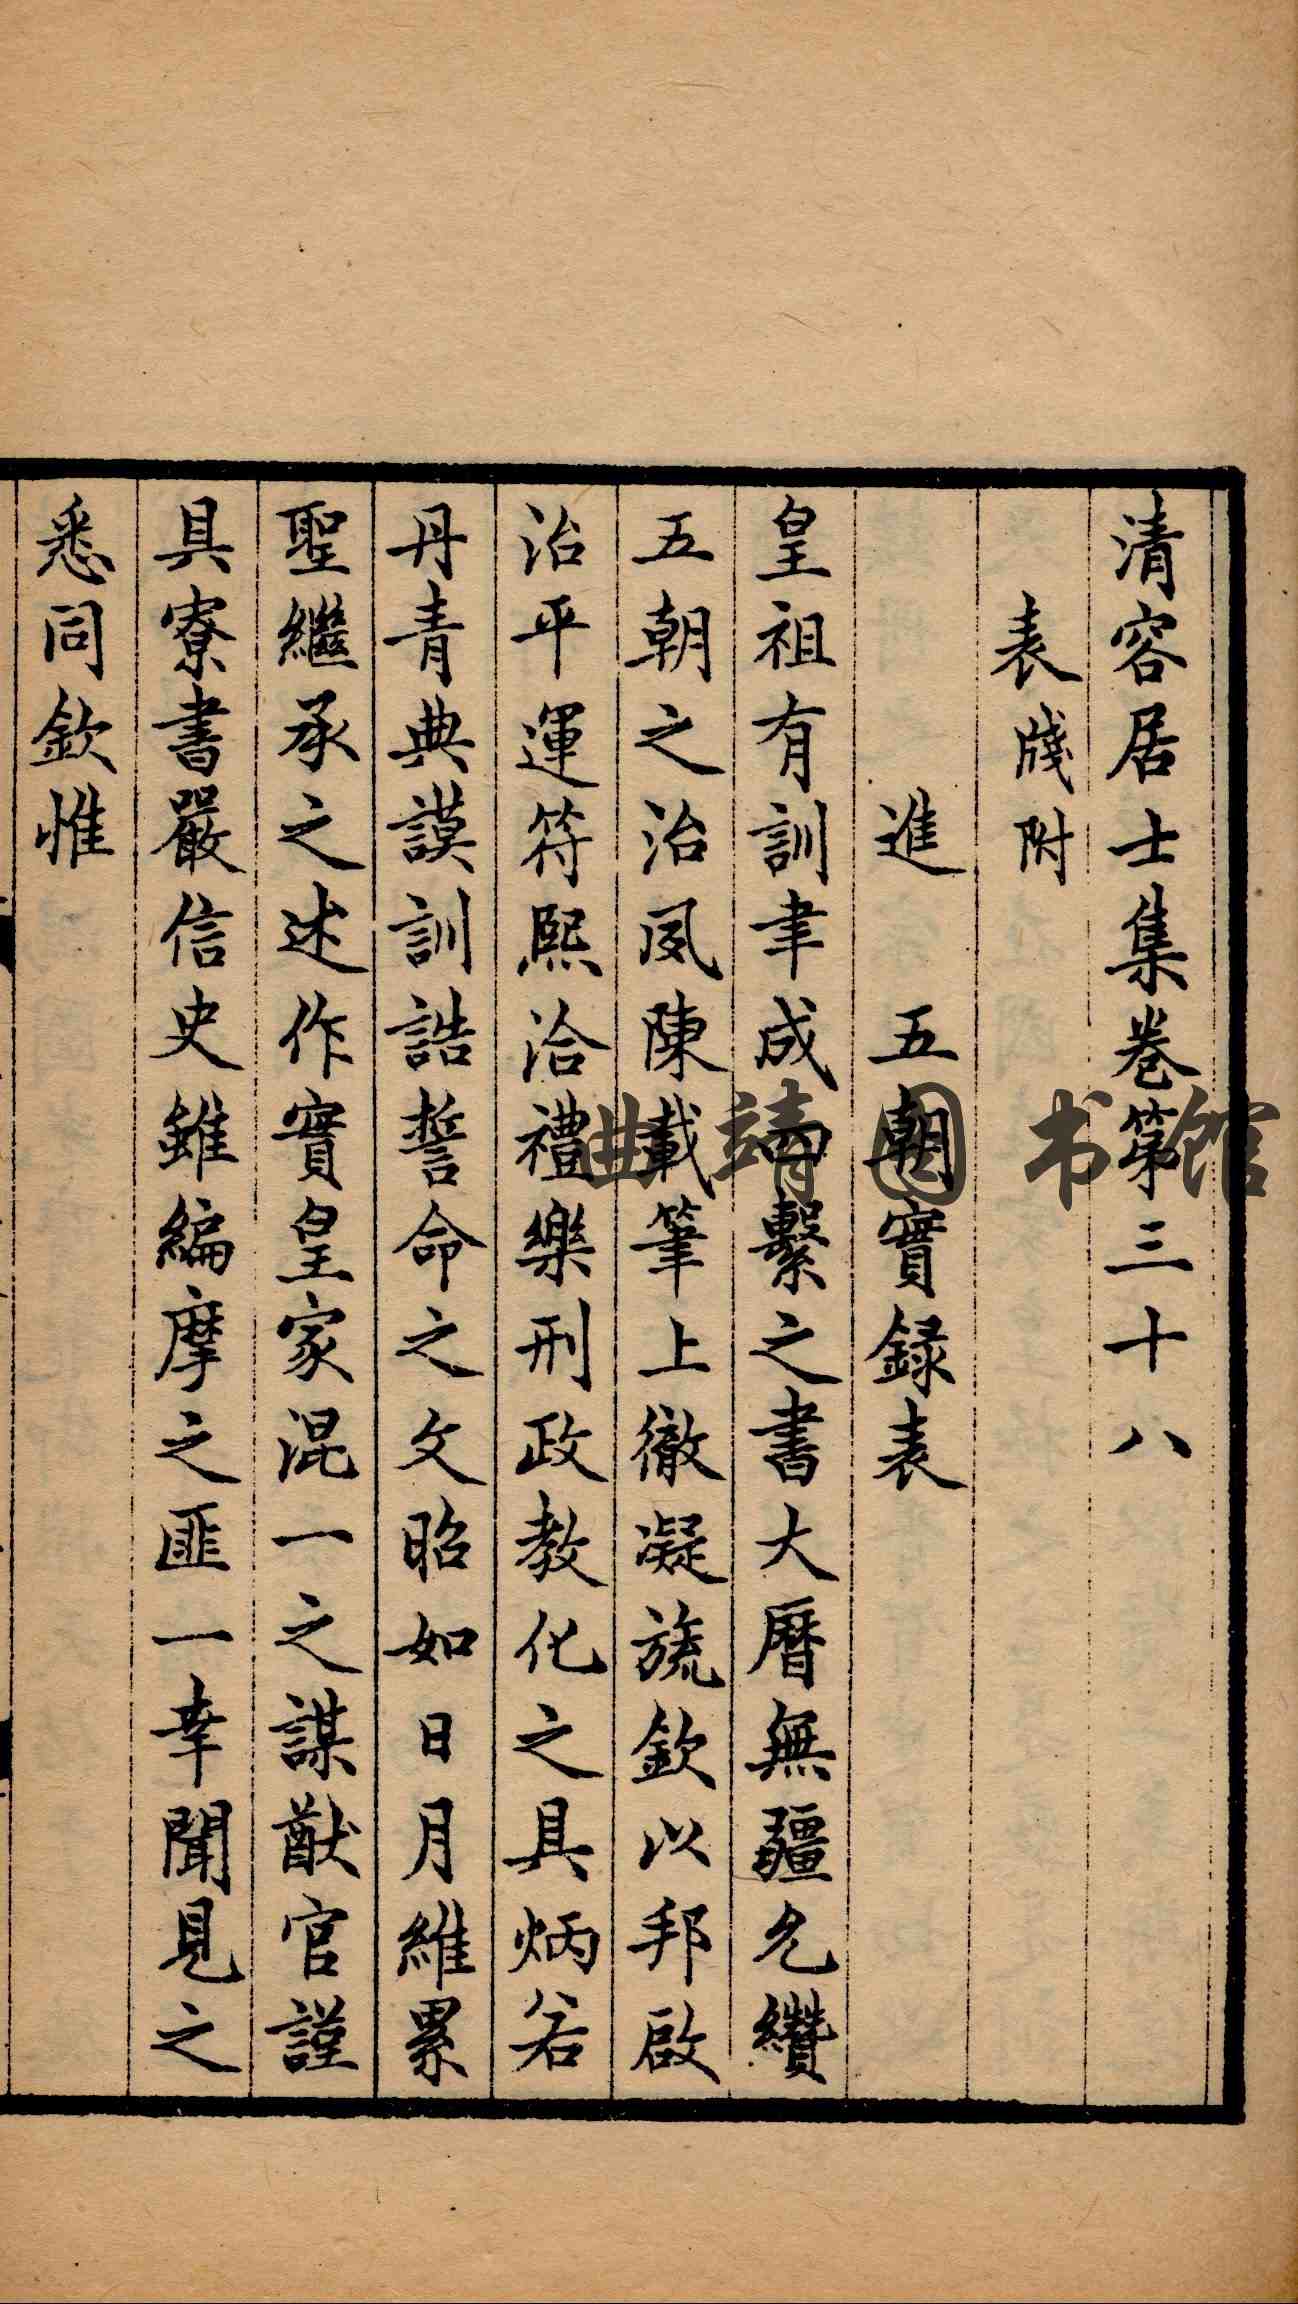 清容居士集卷第三十八
表牋附
進　五朝實録表
皇祖有訓聿成而繫之書大曆無疆允纘
五朝之治夙陳載筆上徹凝旒欽以邦啟
治平運符熙洽禮樂刑政教化之具炳若
丹青典謨訓誥誓命之文昭如日月維累
聖繼承之述作實皇家混一之謀猷官謹
具寮書嚴信史雖編摩之匪一幸聞見之
悉同欽惟
曲靖图书馆